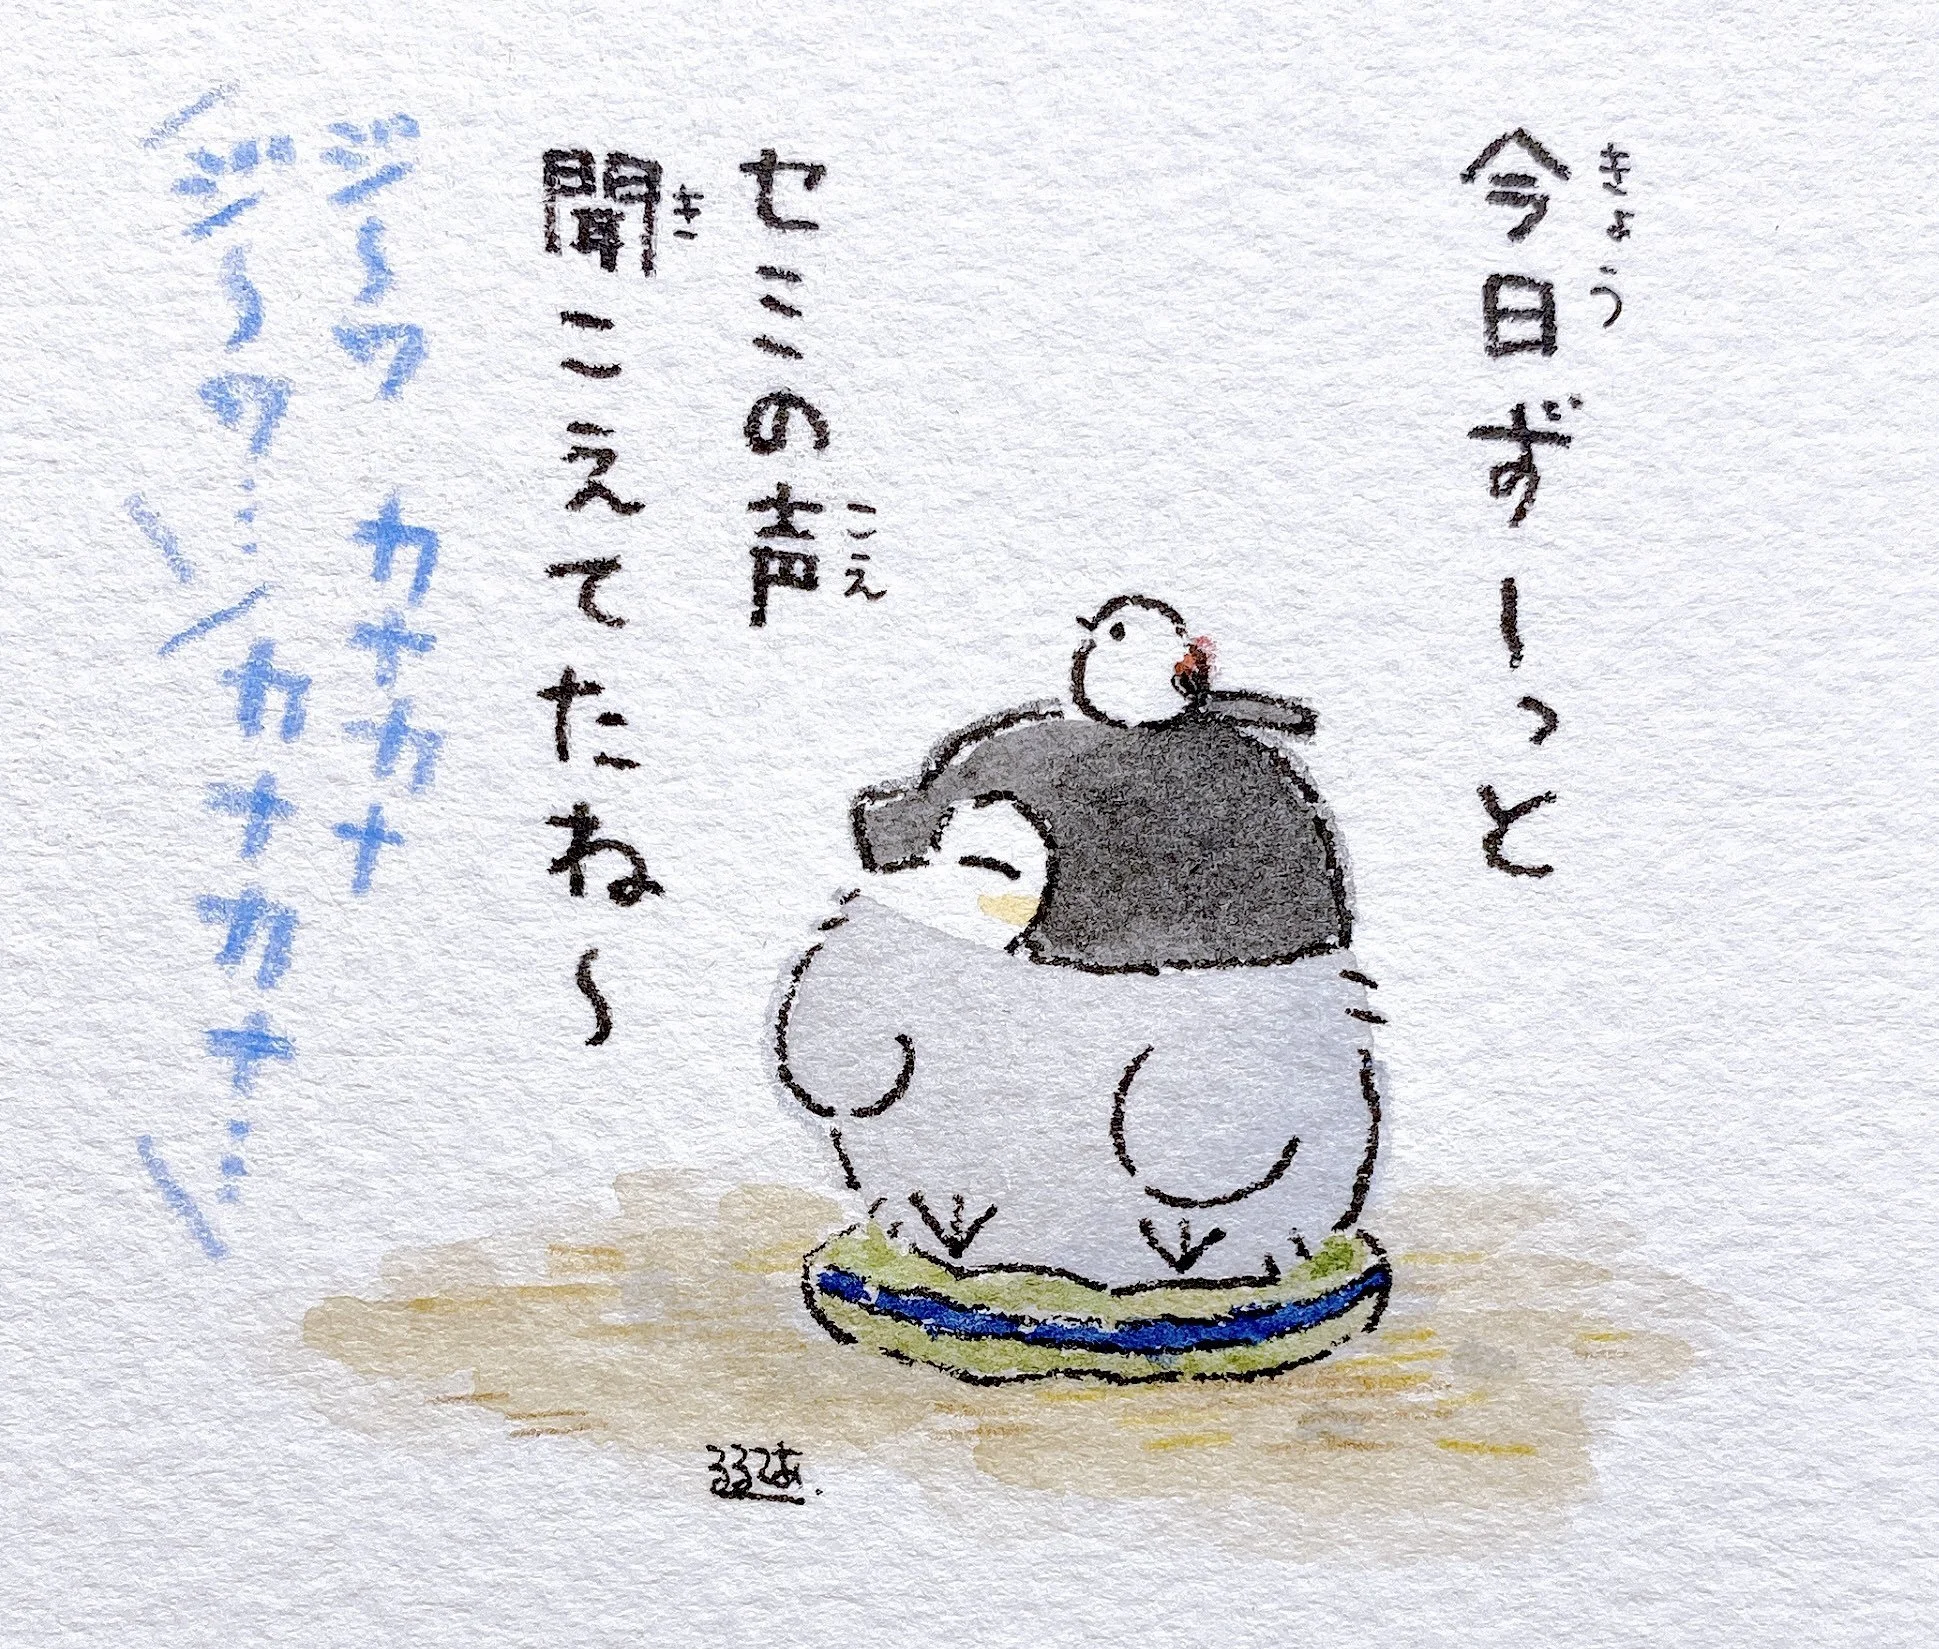 今日ずーっと
きょう
セミの声
こえ
聞こえてたね〜
き
ジ〜ワ カナカナ
ジ〜ワ… カナカナ…
るるてあ